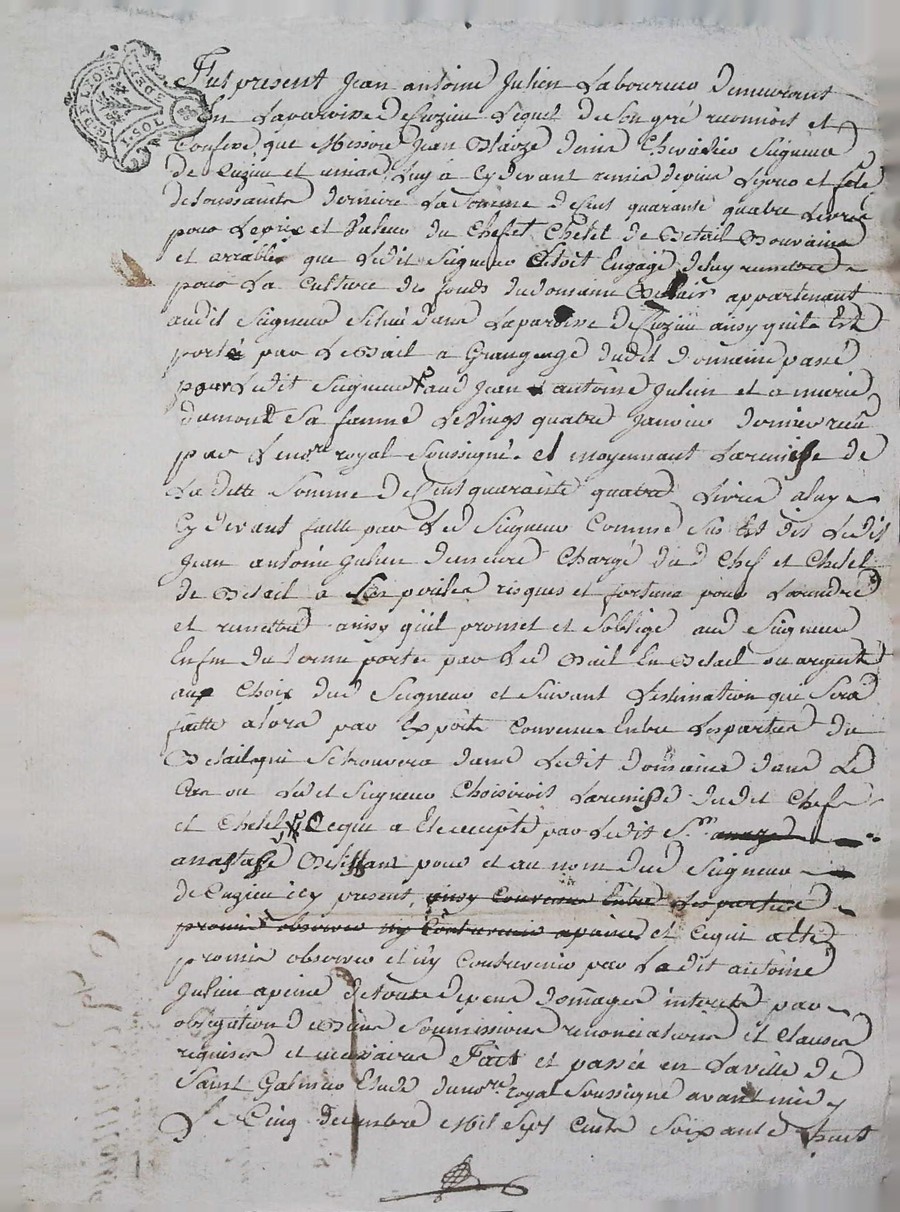 G. DE LYON
I. SOL
DEN.
Fut present Jean antoine Julien Laboureur demeurant
En Laparoisse de Cuzieu Lequel de son gré reconnoit et
Confesse que Messire Jean Blaize denis Chevallier Seigneur
de Cuzieu et unias Luy à Cy devant remis depuis Lejour et fete
detoussaints derniere La somme de Cent quarante quatre Livres
pour Leprix et Valeur du Chef et Chetel de Betail Bouvains
et arrables que Ledit Seigneur Estoit Engagé deluy remettre
pour La Culture des fonds dudomaine appartenant
audit Seigneur Scitué dans Laparoisse de Cuzieu ainsy quil Est
porté par Le Bail a Grangeage dudit domaine passé
par Ledit Seigneur aud Jean antoine Julien et a marie
dumont Sa femme Le Vingt quatre Janvier dernier reçu
par Le nore royal Soussigné. et moyennant Laremise de
La dette Somme de Cent quarante quatre Livres aluy
Cy devant faitte par Led Seigneur Comme Sus Est dit Ledit
Jean antoine Julien demeure Chargé dud Chef et Chetel
de Betail a Ses perils risques et fortune pour Lerendre
et remettre ainsy quil promet et Soblige aud Seigneur
Enfin du terme porté par Led Bail En Betail ou argent
au Choix dud Seigneur et Suivant Lestimation qui Sera
faitte alors par Experts Convenus Entre Lesparties du
Betail qui Setrouvera dans Ledit domaine dans Le
Cas ou Ledit Seigneur Choisiroit Laremise dudit Chef
et Chetel Cequi a Eté accepté par Ledit Sr
anastase pour et au nom dud Seigneur
de Cuzieu icy present, ainsy Convenu Entre Lesparties
promis observer ny Contrevenir apeine et Cequi a Eté
promis observer et ny Contrevenir par Ledit antoine
Julien apeine detoute depens domages interets par
obligation de Biens Soumissions renonciations et Clauses
requises et necessaires Fait et passée en Laville de
Saint Galmier Etude du nore royal Soussigné avant midy
Le Cinq decembre Mil Sept Cents Soixante huit